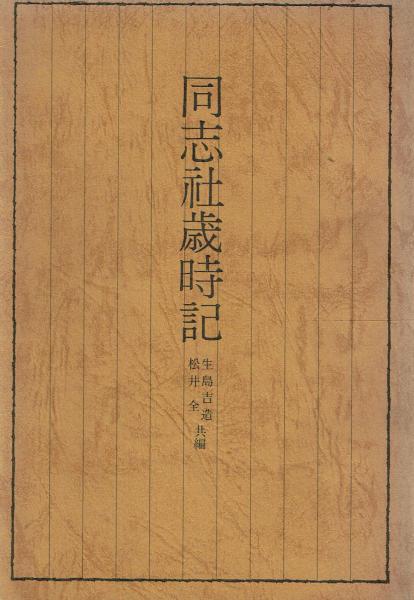 同志社歳時記
生島吉造
松井全
共編